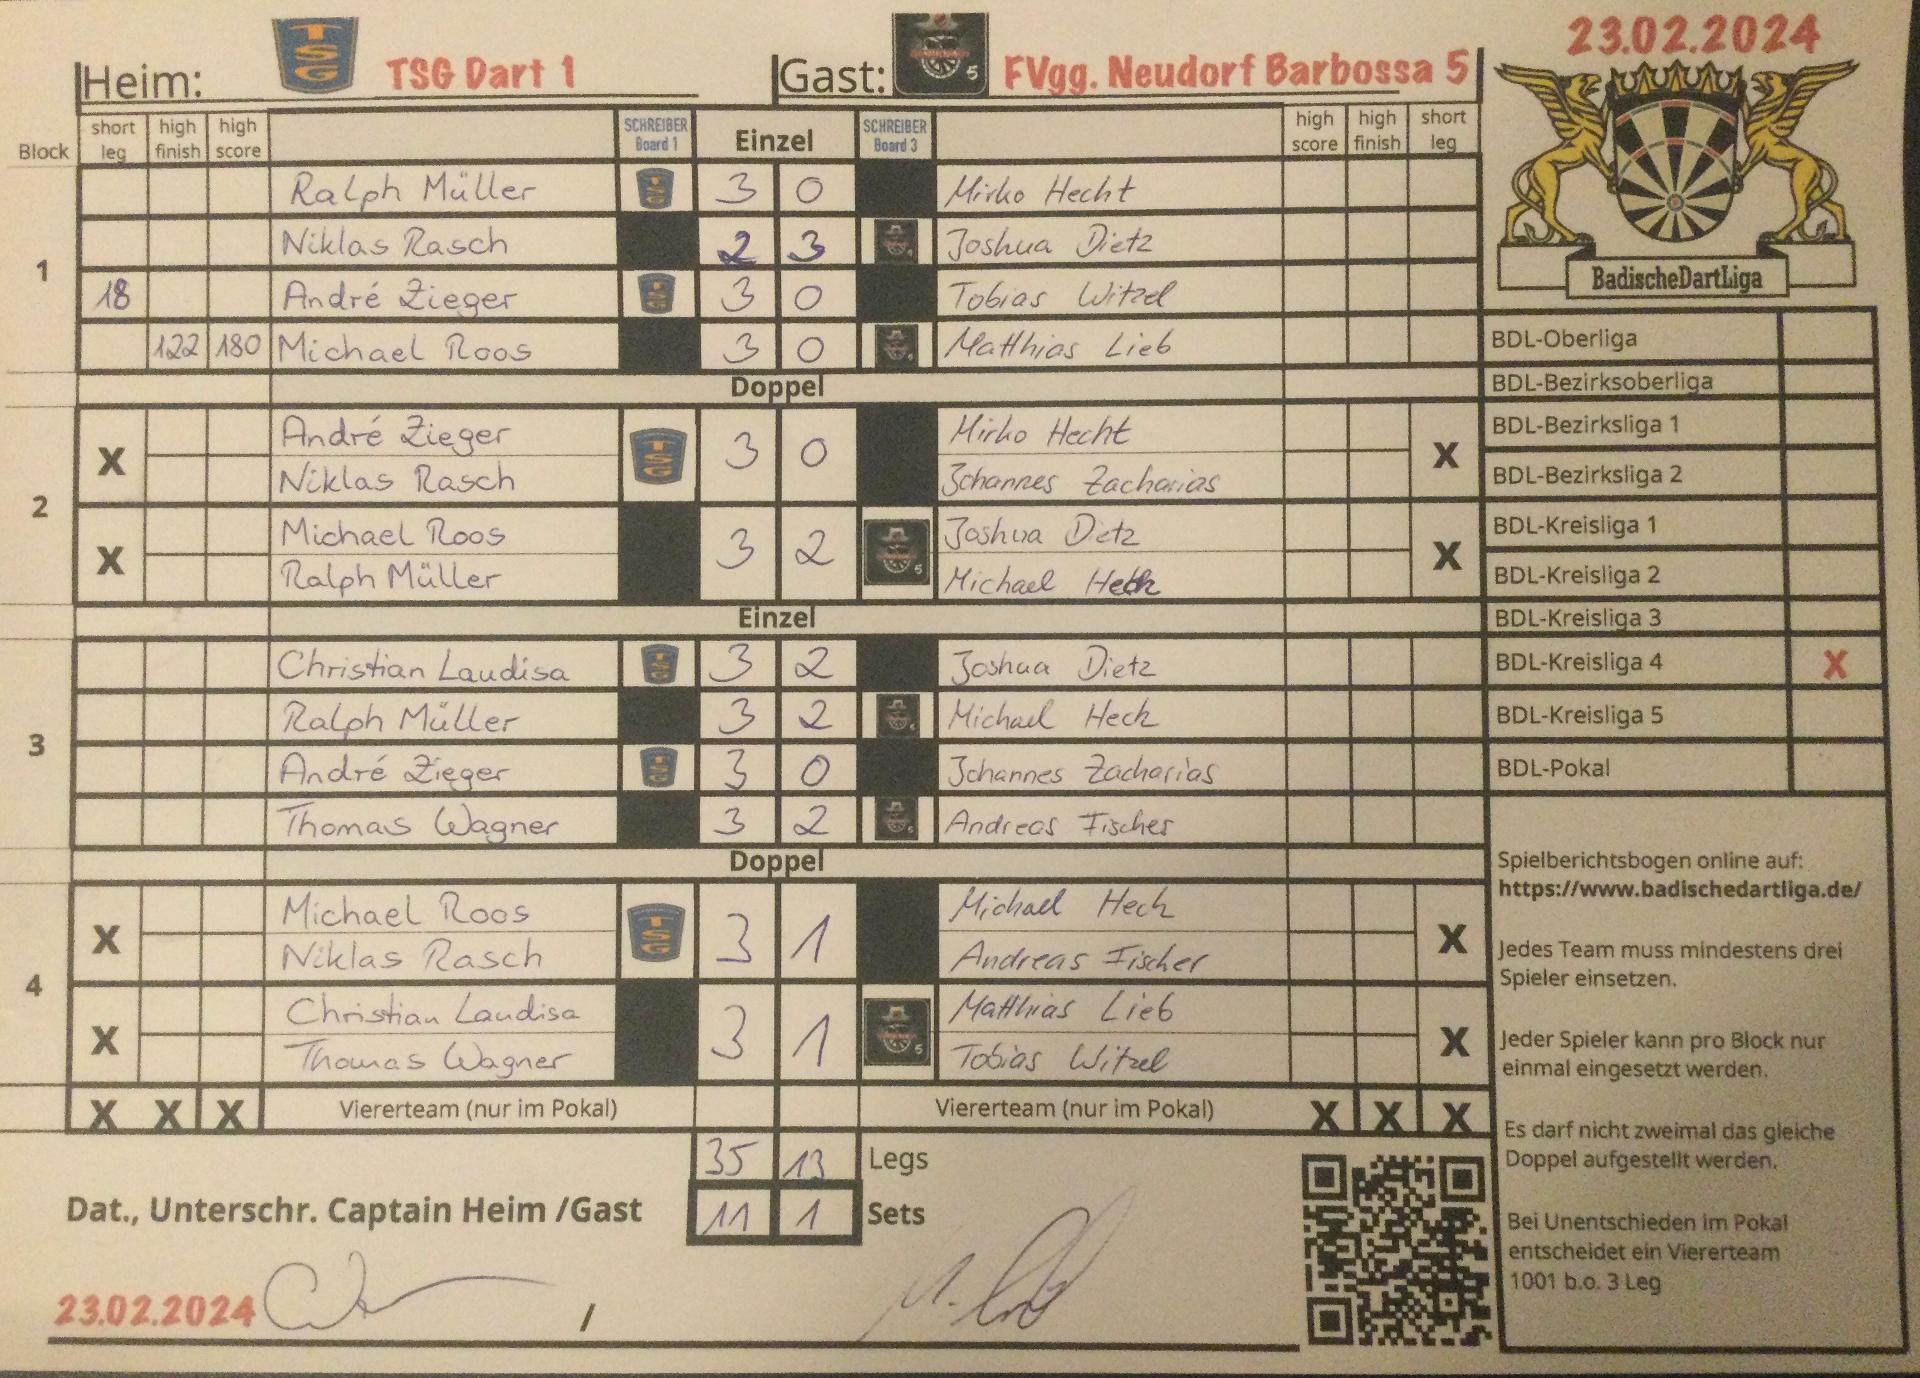 23.02.2024
Heim: TSG TSG Dart 1 Gast: 5 FVgg. Neudorf Barbossa 5
Block short leg high finish high score SCHREIBER Board 1 Einzel SCHREIBER Board 3 high score high finish short leg
1
Ralph Müller TSG 3 0 Mirko Hecht
Niklas Rasch 2 3 Joshua Dietz
18 André Zieger TSG 3 0 Tobias Witzel
122 180 Michael Roos 3 0 Matthias Lieb
Doppel
2
X André Zieger TSG 3 0 Mirko Hecht X
Niklas Rasch Johannes Zacharias
X Michael Roos 3 2 5 Joshua Dietz X
Ralph Müller Michael Heck
Einzel
3
Christian Laudisa TSG 3 2 Joshua Dietz
Ralph Müller 3 2 Michael Heck
André Zieger TSG 3 0 Johannes Zacharias
Thomas Wagner 3 2 Andreas Fischer
Doppel
4
X Michael Roos TSG 3 1 Michael Heck X
Niklas Rasch Andreas Fischer
X Christian Laudisa 3 1 5 Matthias Lieb X
Thomas Wagner Tobias Witzel
X X X Viererteam (nur im Pokal) Viererteam (nur im Pokal) X X X
35 13 Legs
11 1 Sets
Dat., Unterschr. Captain Heim /Gast
23.02.2024 /
BadischeDartLiga
BDL-Oberliga
BDL-Bezirksoberliga
BDL-Bezirksliga 1
BDL-Bezirksliga 2
BDL-Kreisliga 1
BDL-Kreisliga 2
BDL-Kreisliga 3
BDL-Kreisliga 4 X
BDL-Kreisliga 5
BDL-Pokal
Spielberichtsbogen online auf:
https://www.badischedartliga.de/
Jedes Team muss mindestens drei
Spieler einsetzen.
Jeder Spieler kann pro Block nur
einmal eingesetzt werden.
Es darf nicht zweimal das gleiche
Doppel aufgestellt werden.
Bei Unentschieden im Pokal
entscheidet ein Viererteam
1001 b.o. 3 Leg